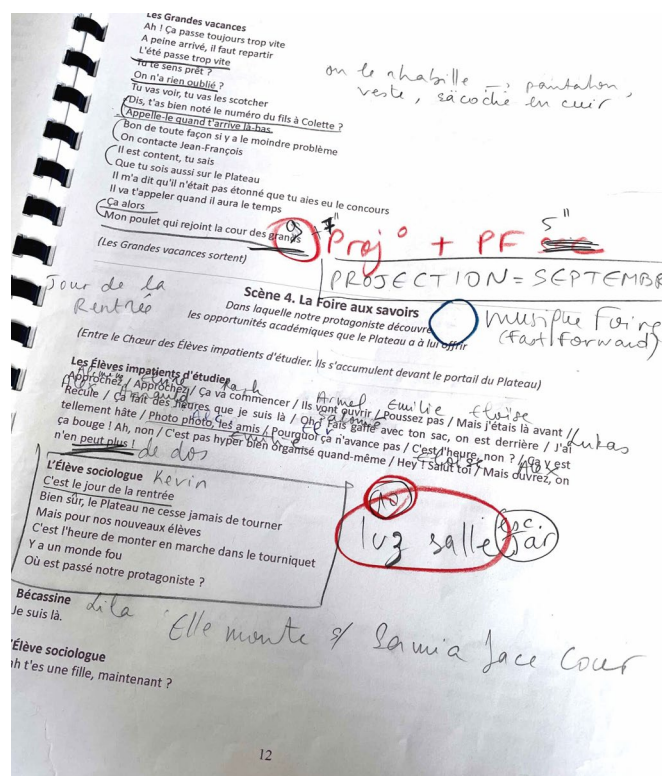 Les Grandes vacances
Ah ! Ça passe toujours trop vite
A peine arrivé, il faut repartir
L'été passe trop vite
Tu te sens prêt ?
On n'a rien oublié ?
Tu vas voir, tu vas les scotcher
Dis, t'as bien noté le numéro du fils à Colette ?
Appelle-le quand t'arrive là-bas
Bon de toute façon si y a le moindre problème
On contacte Jean-François
Il est content, tu sais
Que tu sois aussi sur le Plateau
Il m'a dit qu'il n'était pas étonné que tu aies eu le concours
Il va t'appeler quand il aura le temps
Ça alors
Mon poulet qui rejoint la cour des grands
(Les Grandes vacances sortent)
on le rhabille → pantalon,
veste, sacoche en cuir
Proj° + PF 5"
PROJECTION = SEPTEMBR
Jour de la
Rentrée
Scène 4. La Foire aux savoirs
Dans laquelle notre protagoniste découvre
les opportunités académiques que le Plateau a à lui offrir
musique Foire
(fast forward)
(Entre le Chœur des Élèves impatients d'étudier. Ils s'accumulent devant le portail du Plateau)
Les Élèves impatients d'étudier
Armel Emilie Eloïse
Approchez / Approchez / Ça va commencer / Ils vont ouvrir / Poussez pas / Mais j'étais là avant //
Recule / Ça fait des figures que je suis là / Oh ! Fais gaffe avec ton sac, on est derrière / J'ai
Lukas
tellement hâte / Photo photo, les amis / Pourquoi ça n'avance pas / C'est l'heure, non ? / Ça y est
ça bouge ! Ah, non / C'est pas hyper bien organisé quand-même / Hey ! Salut toi / Mais ouvrez, on
n'en peut plus ! de dos
L'Élève sociologue Kevin
C'est le jour de la rentrée
Bien sûr, le Plateau ne cesse jamais de tourner
Mais pour nos nouveaux élèves
C'est l'heure de monter en marche dans le tourniquet
Y a un monde fou
Où est passé notre protagoniste ?
10
salle
Bécassine Lila
Je suis là.
Elle monte s/ Samia face Cour
'Élève sociologue
ah t'es une fille, maintenant ?
12